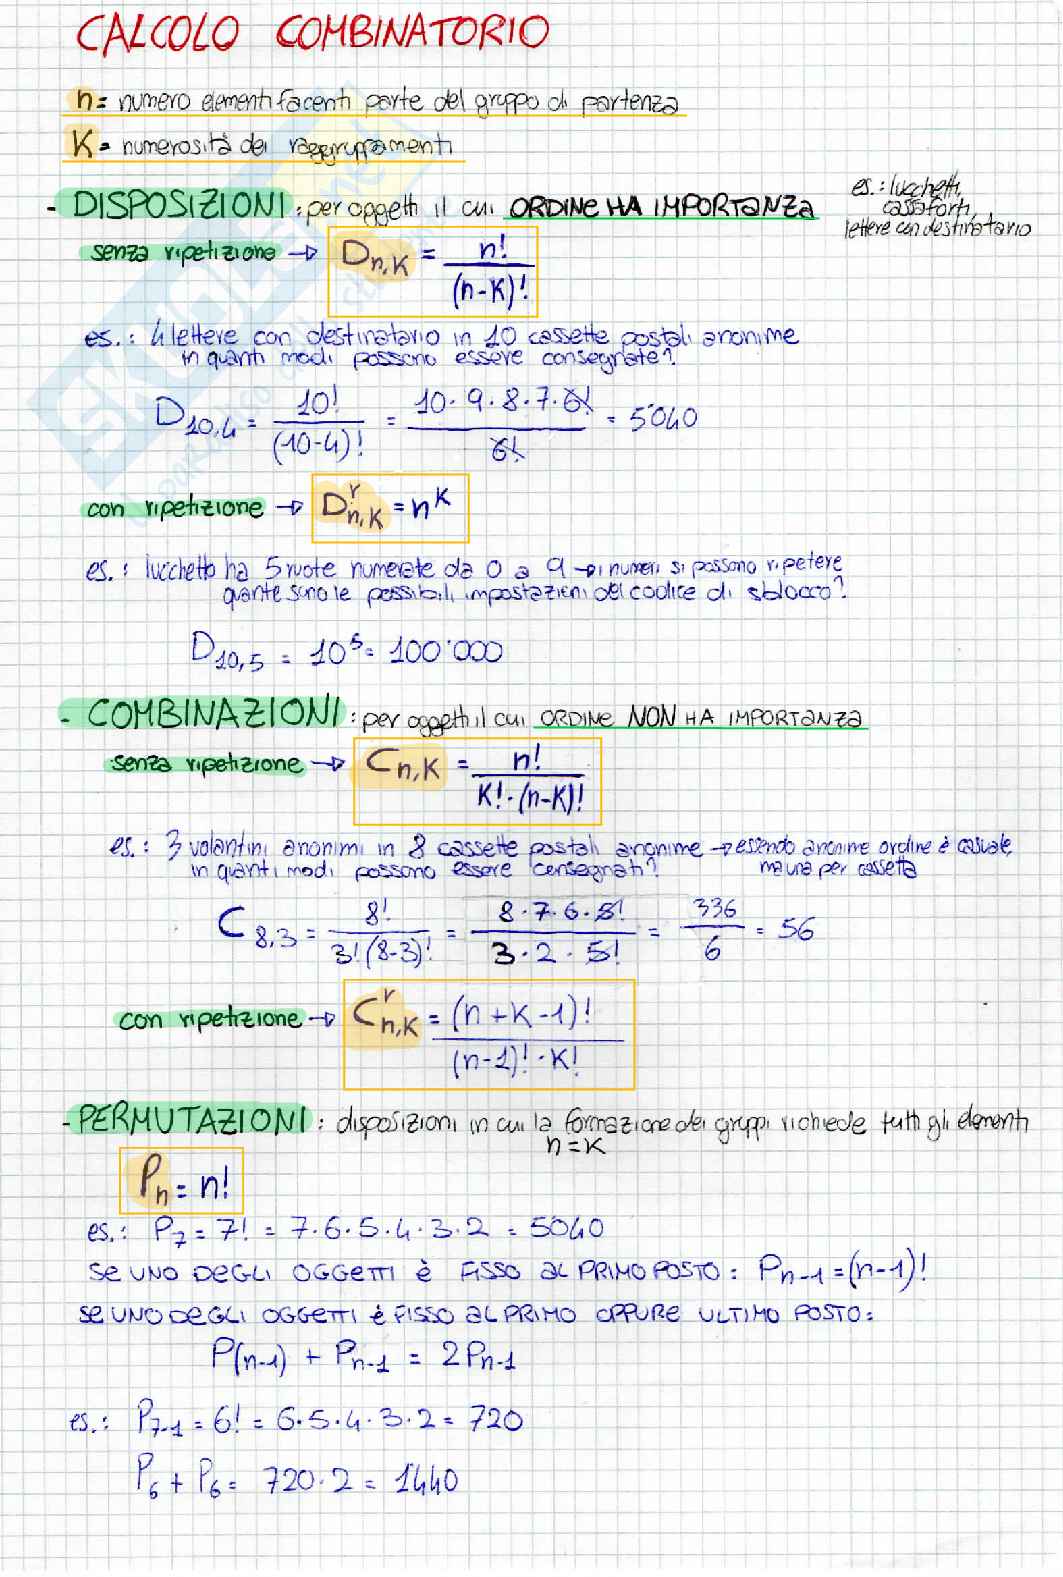 CALCOLO COMBINATORIO
n = numero elementi facenti parte del gruppo di partenza
K = numerosità dei raggruppamenti
- DISPOSIZIONI : per oggetti il cui ORDINE HA IMPORTANZA
es.: lucchetti,
cassaforti,
lettere con destinatario
senza ripetizione → D n,K = n! / (n-K)!
es.: 4 lettere con destinatario in 10 cassette postali anonime
in quanti modi possono essere consegnate?
D 10,4 = 10! / (10-4)! = 10·9·8·7·6! / 6! = 5'040
con ripetizione → D^r n,K = n^K
es.: lucchetto ha 5 ruote numerate da 0 a 9 → i numeri si possono ripetere
quante sono le possibili impostazioni del codice di sblocco?
D 10,5 = 10^5 = 100'000
- COMBINAZIONI : per oggetti il cui ORDINE NON HA IMPORTANZA
senza ripetizione → C n,K = n! / K!·(n-K)!
es.: 3 volantini anonimi in 8 cassette postali anonime → essendo anonime ordine è casuale,
in quanti modi possono essere consegnati? ma una per cassetta
C 8,3 = 8! / 3!(8-3)! = 8·7·6·5! / 3·2·5! = 336 / 6 = 56
con ripetizione → C^r n,K = (n+K-1)! / (n-1)!·K!
- PERMUTAZIONI : disposizioni in cui la formazione dei gruppi richiede tutti gli elementi
n=K
P n = n!
es.: P 7 = 7! = 7·6·5·4·3·2 = 5040
SE UNO DEGLI OGGETTI È FISSO AL PRIMO POSTO: P n-1 = (n-1)!
SE UNO DEGLI OGGETTI È FISSO AL PRIMO OPPURE ULTIMO POSTO:
P(n-1) + P n-1 = 2P n-1
es.: P 7-1 = 6! = 6·5·4·3·2 = 720
P 6 + P 6 = 720·2 = 1440